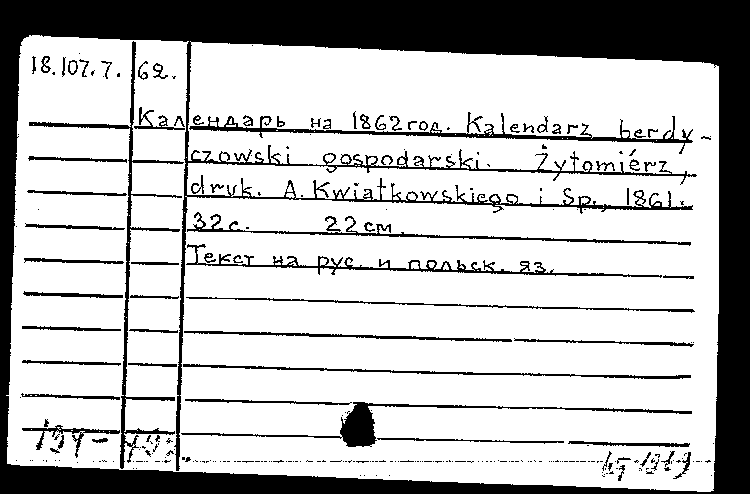 18.107.7. 62.
Календарь на 1862 год. Kalendarz berdy-
czowski gospodarski. Żytomiérz,
druk. A. Kwiatkowskiego i Sp., 1861.
32 с. 22 см.
Текст на рус. и польск. яз.